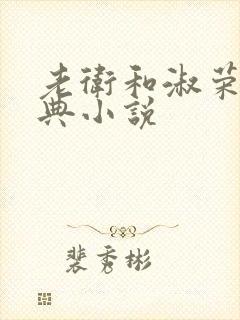 老衛和淑荣
典小説
裴秀彬